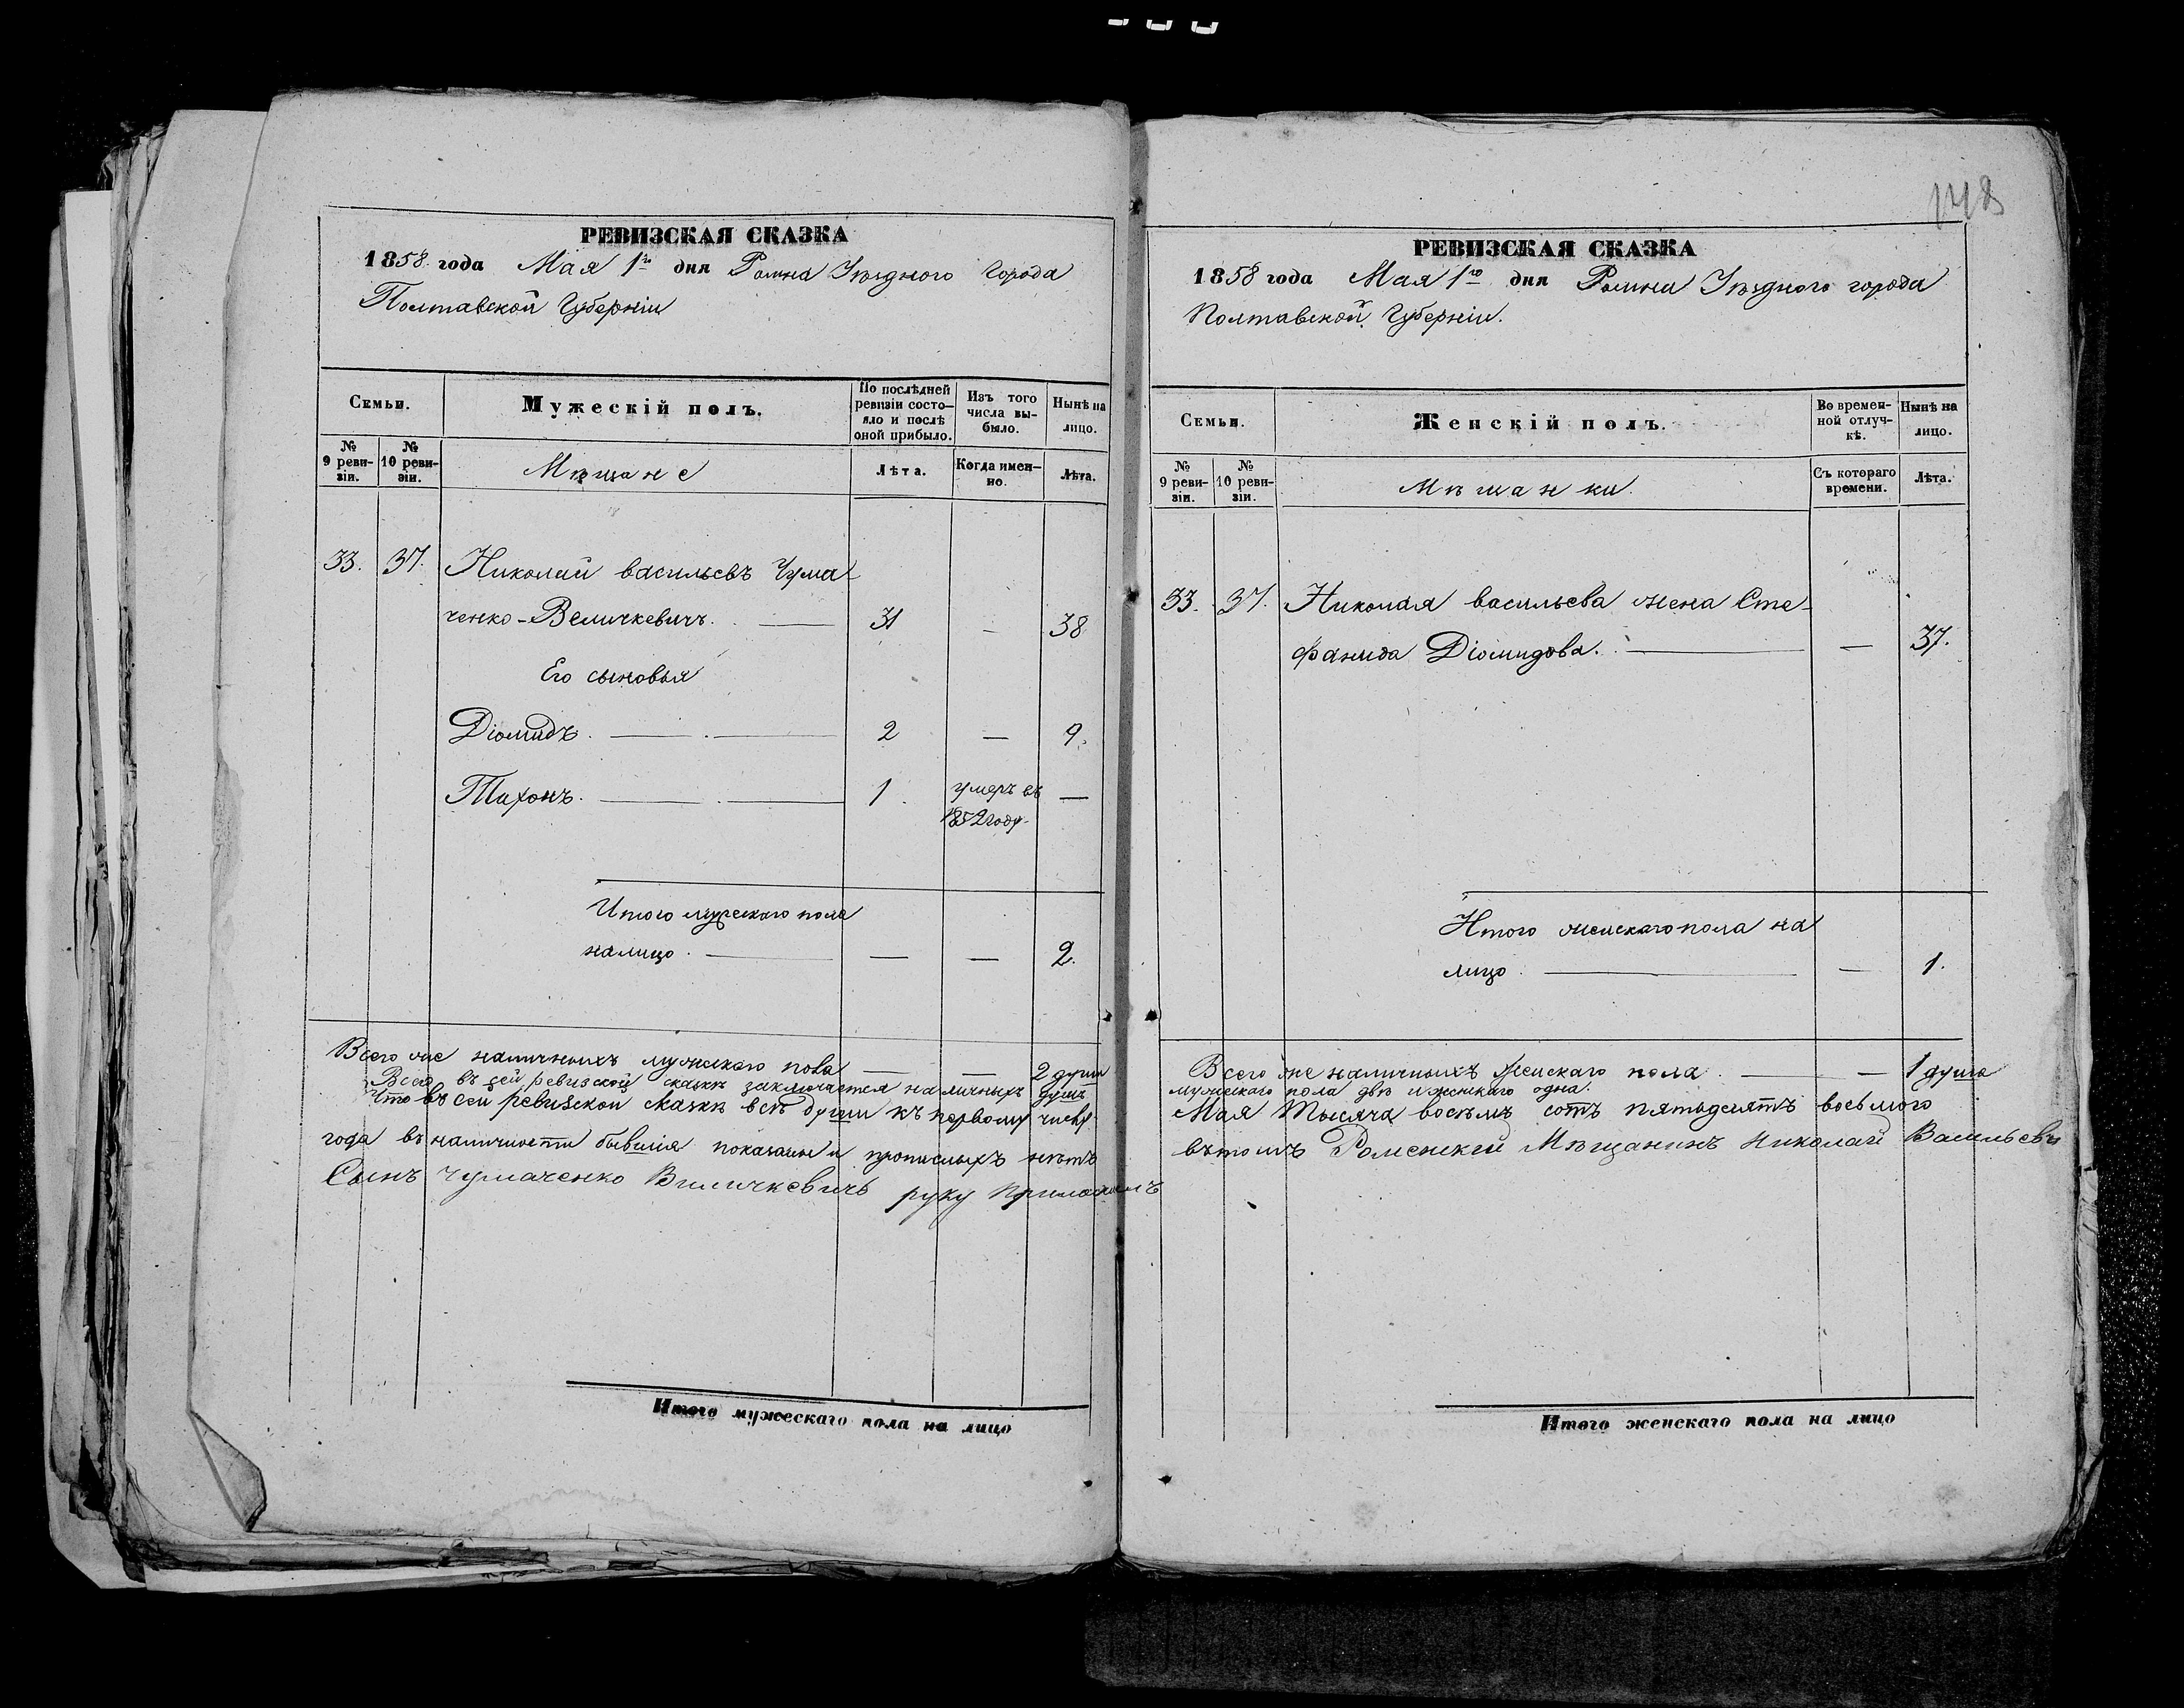 РЕВИЗСКАЯ СКАЗКА
1858 года Мая 1го дня Ромна Уѣзднаго Города
Полтавской Губерніи
Семьи.
Мужескій полъ.
По послѣдней ревизіи состо-
яло и послѣ
оной прибыло.
Изъ того
числа вы-
было.
Нынѣ на
лицо.
№
9 реви-
зіи.
№
10 реви-
зіи.
Мѣщане
Лѣта.
Когда имен-
но.
Лѣта.
33. 37. Николай васильевъ Чума-
ченко-Величкевичъ. 31 — 38
Его сыновья
Діомидъ. 2 — 9.
Тихонъ. 1. умеръ въ —
1852 году.
Итого мужескаго пола
налицо. — — 2.
Всего же наличныхъ мужскаго пола — — 2 души
Всего въ сей ревизской сказкѣ заключается наличныхъ душъ
Что въ сей ревизской сказкѣ всѣ души къ первому числу
года въ наличности бывшія показаны и прописныхъ нѣтъ
Сынъ Чумаченко Виличкевичъ руку приложилъ
Итого мужескаго пола на лицо
1858 года Мая 1го дня Ромна Уѣзднаго города
РЕВИЗСКАЯ СКАЗКА
Полтавской Губерніи.
Семьи.
Женскій полъ.
Во времен-
ной отлуч-
кѣ.
Нынѣ на
лицо.
№
9 реви-
зіи.
№
10 реви-
зіи.
Мѣщанки.
Съ котораго
времени.
Лѣта.
33. 37. Николая васильева жена Сте-
фанида Діомидова. — 37.
Итого женскаго пола на
лицо. — 1.
Всего же наличныхъ женскаго пола. — 1 душа
мужескаго пола двѣ и женскаго одна.
Мая тысяча восемь сотъ пятьдесятъ восьмого
въ томъ Роменскій Мѣщанинъ Николай Васильевъ
Итого женскаго пола на лицо